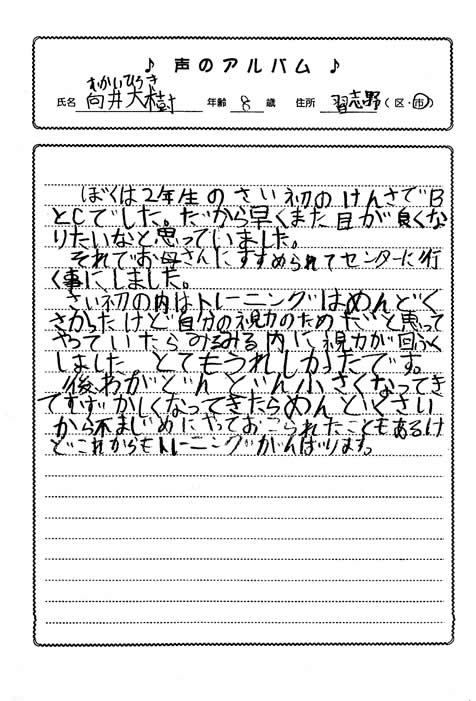 ♪ 声のアルバム ♪
むかいひろき
氏名 向井大樹 年齢 8 歳 住所 習志野(区・市)
ぼくは2年生のさい初のけんさでB
とCでした。だから早くまた目が良くな
りたいなと思っていました。
それでお母さんにすすめられてセンターに行
く事にしました。
さい初の内はトレーニングはめんどく
さかったけど自分の視力のためだと思って
やっていたらみるみる内に視力が回ふく
しました。とてもうれしかったです。
後わがどんどん小さくなってき
てむずかしくなってきたらめんどくさい
から不まじめにやっておこられたこともあるけ
どこれからもトレーニングがんばります。